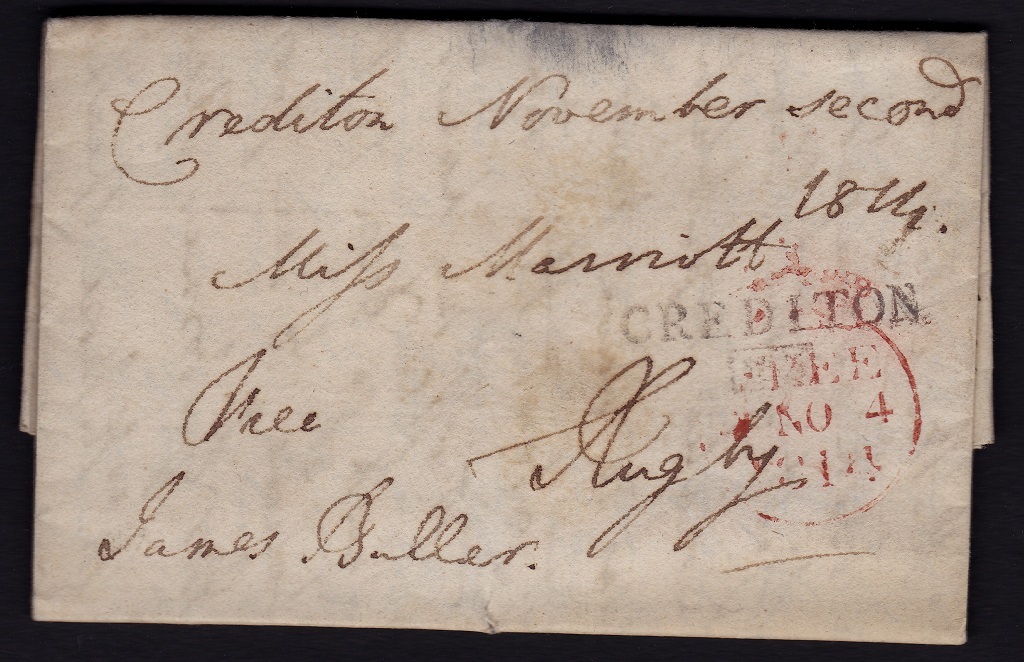 Crediton November second
1814.
Miss Marriott
CREDITON
FREE
NO 4
1814
Free
Rugby
James Buller.